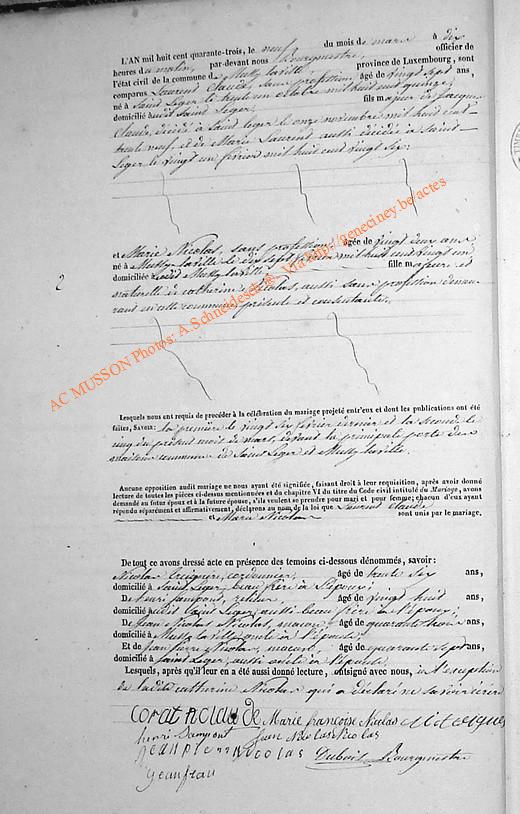 L'AN mil huit cent quarante-trois, le neuf du mois de mars à dix
heures du matin, par-devant nous Bourgmestre, officier de
l'état civil de la commune de Mussy la ville province de Luxembourg, sont
comparus Laurent Claude, sans profession, âgé de vingt sept ans,
né à Saint Leger le trente un octobre mil huit cent quinze;
domicilié audit Saint Leger fils majeur de Jacque
Claude, décédé à Saint leger le onze novembre mil huit cent
trente neuf, et de Marie Laurent aussi décédée à Saint-
Leger le vingt un février mil huit cent vingt six.
et Marie Nicolas, sans profession âgée de vingt deux ans
né à Mussy la ville le dix sept février mil huit cent vingt un
domiciliée audit Mussy la ville fille majeure et
naturelle de catherine Nicolas, aussi sans profession demeu-
rant en cette commune, présente et consentante.
2
AC MUSSON Photos: A.Schneidesch ©. Via http://geneciney.be/actes
Lesquels nous ont requis de procéder à la célébration du mariage projeté entr'eux et dont les publications ont été
faites, SAVOIR: la première le vingt six février dernier et la seconde le
cinq du présent mois de mars, devant la principale porte des
maisons commune de Saint Leger et Mussy la ville.
Aucune opposition audit mariage ne nous ayant été signifiée, faisant droit à leur requisition, après avoir donné
lecture de toutes les pièces ci-dessus mentionnées et du chapitre VI du titre du Code civil intitulé du Mariage, avons
demandé au futur époux et à la future épouse, s'ils veulent se prendre pour mari et pour femme; chacun d'eux ayant
répondu séparément et affirmativement, déclarons au nom de la loi que Laurent Claude
et Marie Nicolas sont unis par le mariage.
De tout ce avons dressé acte en présence des temoins ci-dessous dénommés, savoir:
Nicolas cordonnier, âgé de trente six ans,
domicilié à Saint Leger, beau frère à l'époux;
De henri sampont, âgé de vingt huit ans,
domicilié audit Saint Leger, aussi beau frère à l'époux;
De Jean Nicolas Nicolas, maçon, âgé de quarante ans,
domicilié à Mussy la ville oncle à l'épouse;
Et de Jean Pierre Nicolas, âgé de quarante sept ans,
domicilié à Saint Leger, aussi oncle à l'épouse.
Lesquels, après qu'il leur en a été aussi donné lecture, ont signé avec nous, à l'exception
de ladite catherine Nicolas qui a déclaré ne savoir écrire
Marie françoise Nicolas
henri Sampont Jean Nicolas Nicolas
jean pierre Nicolas Dubois Bourgmestre